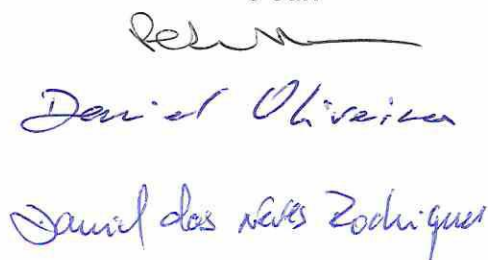 Daniel Oliveira
Daniel das Neves Rodrigues